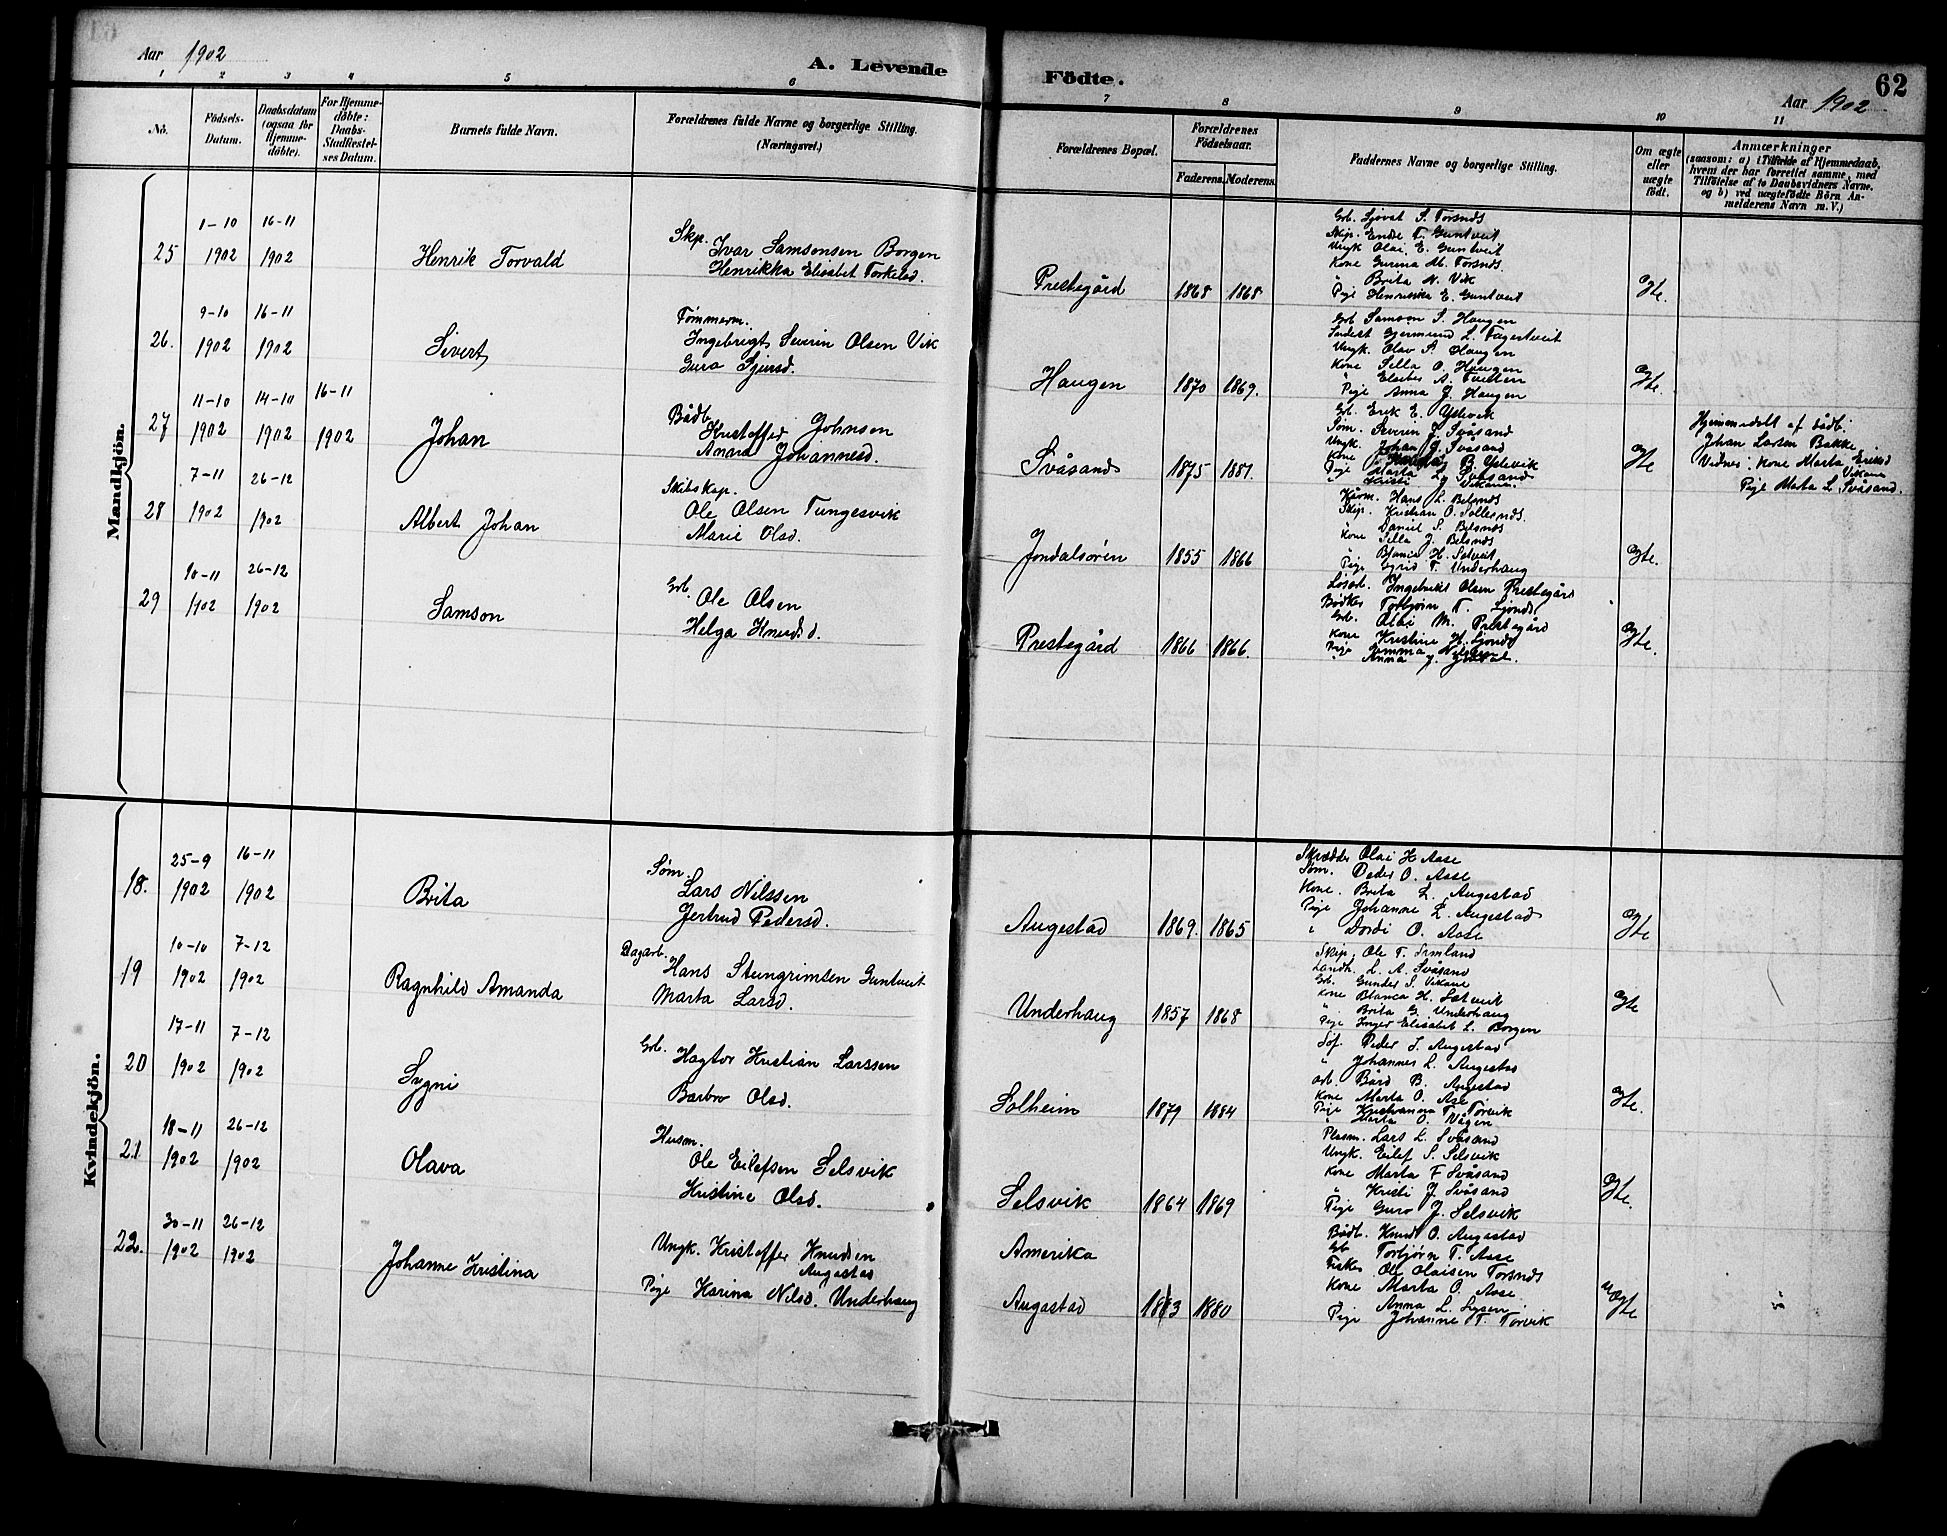 Aar 1902
A. Levende
Födte.
62
Aar 1902
1 2 3 4 5 6 7 8 9 10 11
No.
Födsels-
Datum.
Daabsdatum
(ogsaa for
Hjemme-
döbte).
For Hjemme-
döbte:
Daabs-
Stadfæstel-
ses Datum.
Barnets fulde Navn.
Forældrenes fulde Navne og borgerlige Stilling.
(Næringsvei.)
Forældrenes Bopæl.
Forældrenes
Födselsaar.
Faderens. Moderens.
Faddernes Navne og borgerlige Stilling.
Om ægte
eller
uægte
födt.
Anmærkninger
(saasom: a) i Tilfælde af Hjemmedaab,
hvem der har forrettet samme, med
Tilföielse af to Daabsvidners Navne,
og b) ved uægtefödte Börn An-
melderens Navn m. V.)
Mandkjön.
25
1-10
1902
16-11
1902
Henrik Torvald
Skp.
Ivar Samsonsen Borgen
Henrikka Elisabet Torkelsd.
Prestegård
1868 1868
Gb. Sjovat S. Torsnes
Skip. Endre T. Guntveit
Ungk Olai E. Guntveit
Kone Gurina M. Torsnes
" Brita N. Vik
Pige Henrikka E. Guntveit
Egte.
26.
9-10
1902
16-11
1902
Sivert
Tømmerm.
Ingebrigt Severin Olsen Vik
Guro Sjursd.
Haugen
1870 1869.
Gb Samson S. Haugen
Gjermund L. Fagertveit
Ungk. Olav S. Haugen
Kone Silla O. Haugen
Pige Anna J. Haugen
Egte.
27
11-10
1902
14-10
1902
16-11
1902
Johan
Bådb.
Kristoffer Johnsen
Anna Johannesd.
Svåsand
1875 1881.
Gb. Erik E. Ystevik
Søm. Severin J. Svåsand
Ungk. Johan J. Svåsand
Kone B. Ystevik
Pige Marta L. Svåsand
Egte
Hjemmedøbt af bådb.
Johan Larsen Bakke
Vidner. Kone Marta Eriksd
Vikane
Pige Marta L Svåsand.
28
7-11
1902
26-12
1902
Albert Johan
Skibskap.
Ole Olsen Tungesvik
Marie Olsd.
Jondalsøren
1855 1866
Hans L. Belsnes
Skip. Kristian O. Solesnes.
" Daniel S. Belsnes
Kone Silla J. Belsnes
" Blanca H. Sætveit
Pige Sygrid T. Underhaug
Egte.
29
10-11
1902
26-12
1902
Samson
Gb.
Ole Olsen
Helga Knudsd.
Prestegård
1866 1866.
Løsarb. Ingebrikt Olsen Prestegård
Bødker Torbjørn T. Ljones
Gb. Olai M. Prestegård
Kone Kristine H. Ljones
Pige
Egte.
Kvindekjön.
18.
25-9
1902
16-11
1902
Brita
Søm.
Lars Nilssen
Gertrud Pedersd.
Augestad
1869. 1865
Skrædder Olai H Aase
Søm. Peder O. Aase
Kone. Brita L. Augestad
Pige Johanne L. Augestad
" Dordi O. Aase
Egte
19
10-10
1902
7-12
1902
Ragnhild Amanda
Dagarb.
Hans Steingrimsen Guntveit
Marta Larsd.
Underhaug
1857 1868
Skip. Ole T. Irmland
Landh. L. A. Svåsand
Gb. Gunder S. Vikane
Kone Blanca H. Sætveit
" Brita G. Underhaug
Pige Inger Elisabet L. Borgen
Egte
20
17-11
1902
7-12
1902
Sygni
Gb. Hagtor Kristian Larssen
Barbro Olsd.
Solheim
1879 1884
Søf. Peder I. Augestad
" Johannes L. Augestad
Arb. Bård B. Augestad
Kone Marta O. Aase
Pige Kristianna T. Torvik
" Marta O. Vågen
Egte.
21
18-11
1902
26-12
1902
Olava
Husm.
Ole Eilefsen Selsvik
Kristine Olsd.
Selsvik
1864 1869
Plasm. Lars L. Svåsand
Ungk. Eilef S. Selsvik
Kone Marta F Svåsand
" Kristi J. Svåsand
Pige Guro J. Selsvik
Egte.
22.
30-11
1902
26-12
1902
Johanne Kristina
Ungk. Kristoffer Knudsen
Augestad
Pige Karina Nilsd. Underhaug
Amerika
Augestad
1883 1880
Bådb. Knud O. Augestad
Gb Torbjørn T. Aase
Fisker Ole Olaisen Torsnes
Kone Marta O. Aase
" Anna L. Lysen
Pige Johanne T. Torvik
uEgte